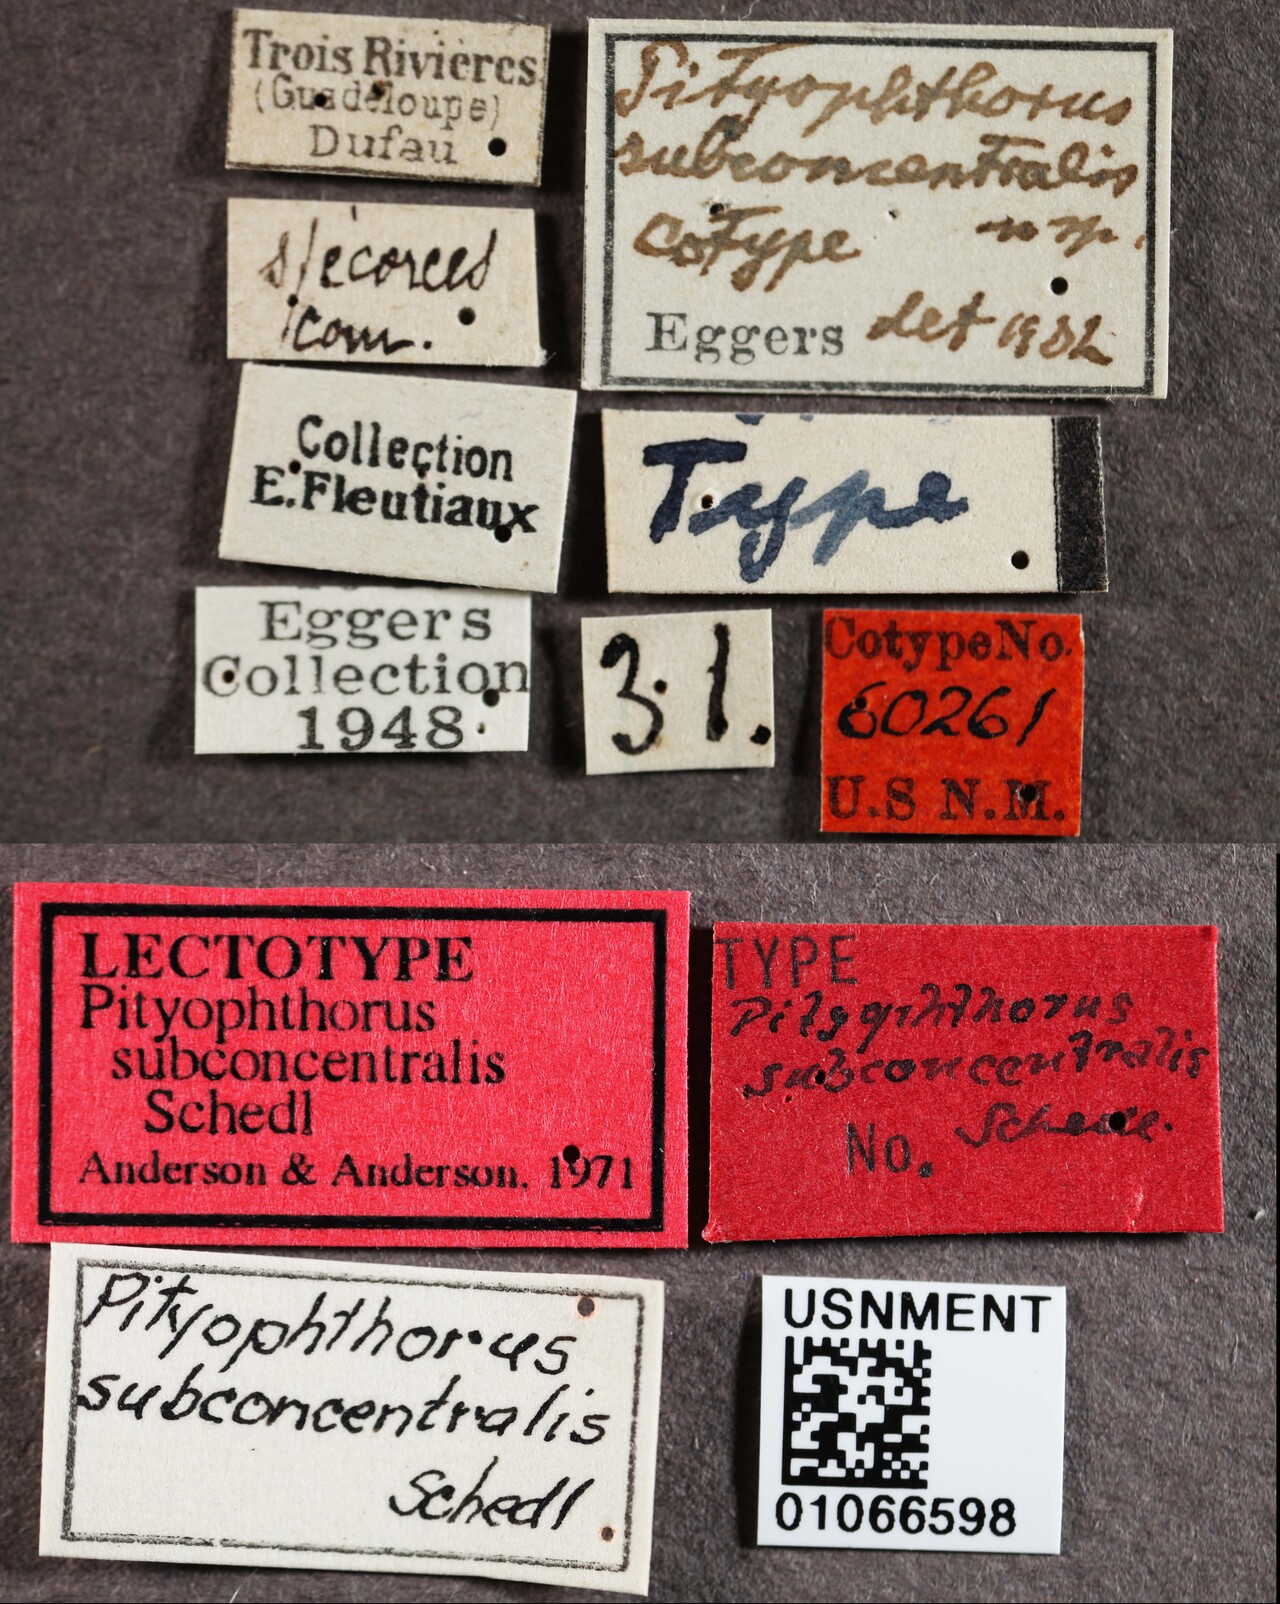 Trois Rivières
(Guadeloupe)
Dufau
Pityophthorus
subconcentralis
cotype n sp.
Eggers det 1932
s/écorces
Collection
E. Fleutiaux
Type
Eggers
Collection
1948
31.
Cotype No.
60261
U.S N.M.
LECTOTYPE
Pityophthorus
subconcentralis
Schedl
Anderson & Anderson. 1971
TYPE
Pityophthorus
subconcentralis
Schedl.
No.
Pityophthorus
subconcentralis
Schedl
USNMENT
01066598